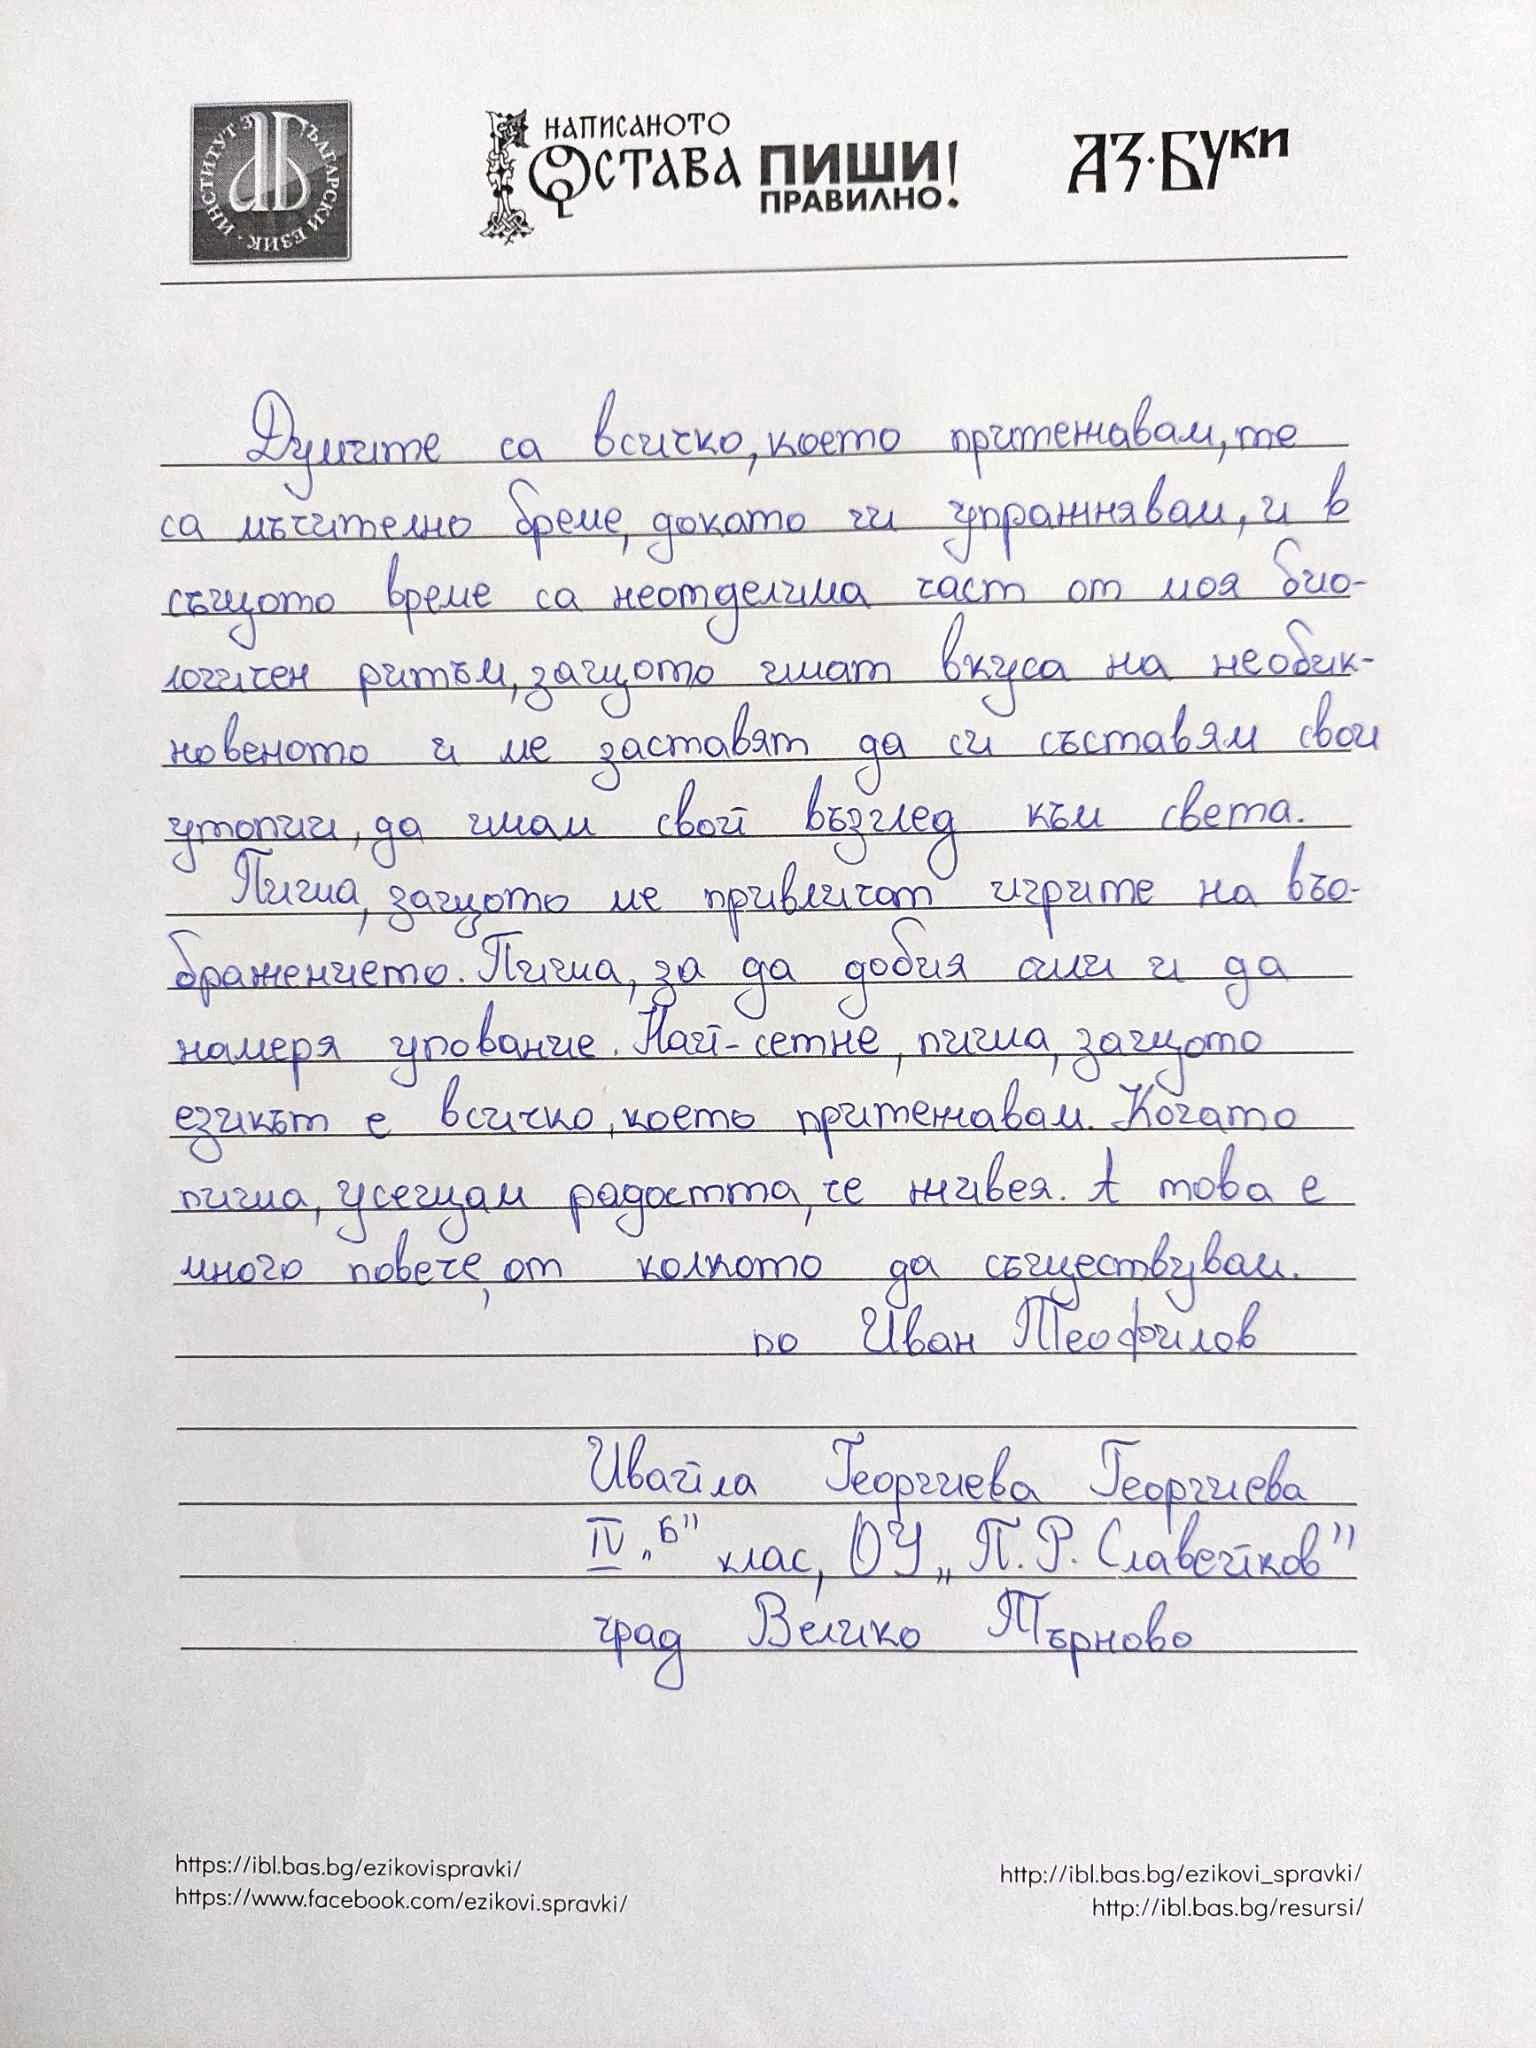 ИНСТИТУТ ЗА БЪЛГАРСКИ ЕЗИК
НАПИСАНОТО
ОСТАВА ПИШИ
ПРАВИЛНО!
АЗ·БУКИ
Думите са всичко, което притежавам, те
са мъчително бреме, докато ги упражнявам, и в
същото време са неотделима част от моя био-
логичен ритъм, защото имат вкуса на необик-
новеното и ме заставят да си съставям свои
утопии, да имам свой възглед към света.
Пиша, защото ме привличат игрите на въо-
бражението. Пиша, за да добия сили и да
намеря упование. Най-сетне, пиша, защото
езикът е всичко, което притежавам. Когато
пиша, усещам радостта, че живея. А това е
много повече, от колкото да съществувам.
по Иван Теофилов
Ивайла Георгиева Георгиева
IV „б" клас, ОУ „П. Р. Славейков"
град Велико Търново
https://ibl.bas.bg/ezikovispravki/
https://www.facebook.com/ezikovi.spravki/
http://ibl.bas.bg/ezikovi_spravki/
http://ibl.bas.bg/resursi/